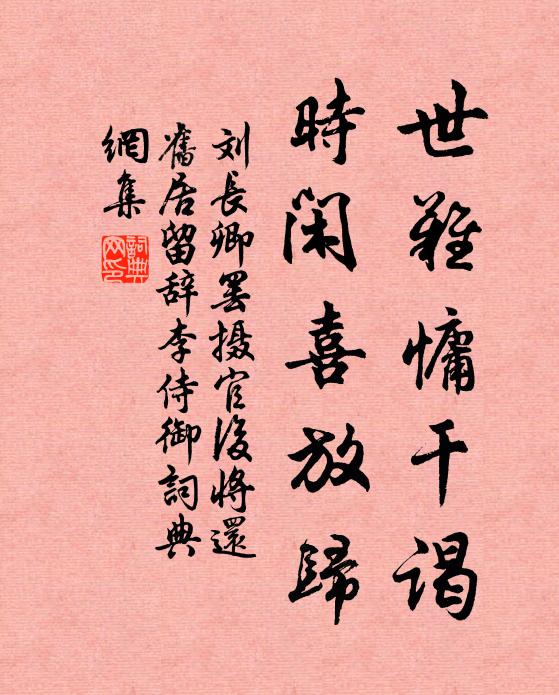 世難慵干謁
時閑喜放歸
刘長卿罢摄官後將還
舊居留辞李侍御詞典
網集
詞典網印